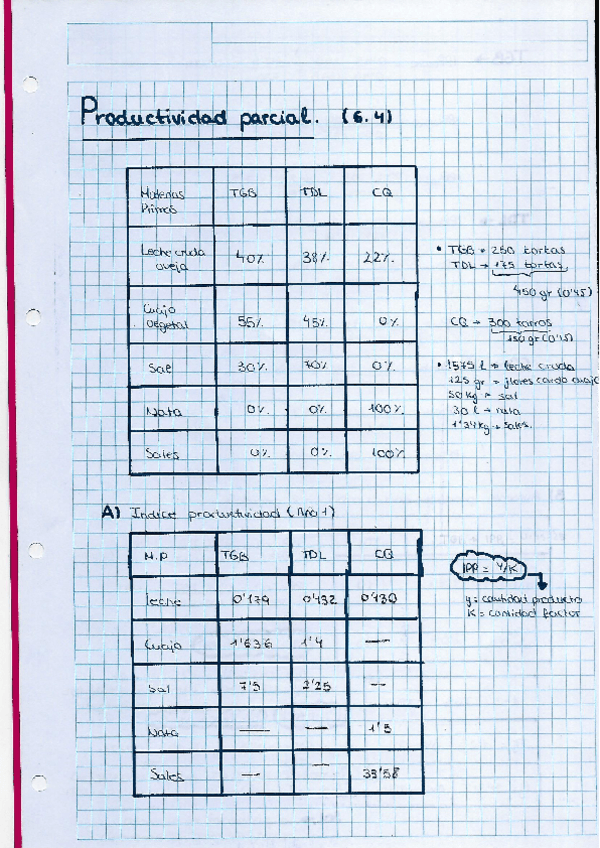 Productividad parcial. (6.4)
Materias Primas TGB TDL CQ
Leche cruda oveja 40% 38% 22%
Cuajo vegetal 55% 45% 0%
Sal 30% 70% 0%
Nata 0% 0% 100%
Sales 0% 0% 100%
• TGB → 250 tortas
TDL → 175 tortas
450 gr (0'45)
CQ → 300 tarros
150 gr (0'15)
• 1575 l → leche cruda
125 gr → flores cardo
50 kg → sal
30 l → nata
1'34 kg → sales.
A) Indice productividad (Año 1)
M.P TGB TDL CQ
leche 0'179 0'132 0'130
Cuajo 1'636 1'4 —
Sal 7'5 2'25 —
Nata — — 1'5
Sales — — 33'58
IPP = Y/K
y = cantidad producto
K = cantidad factor